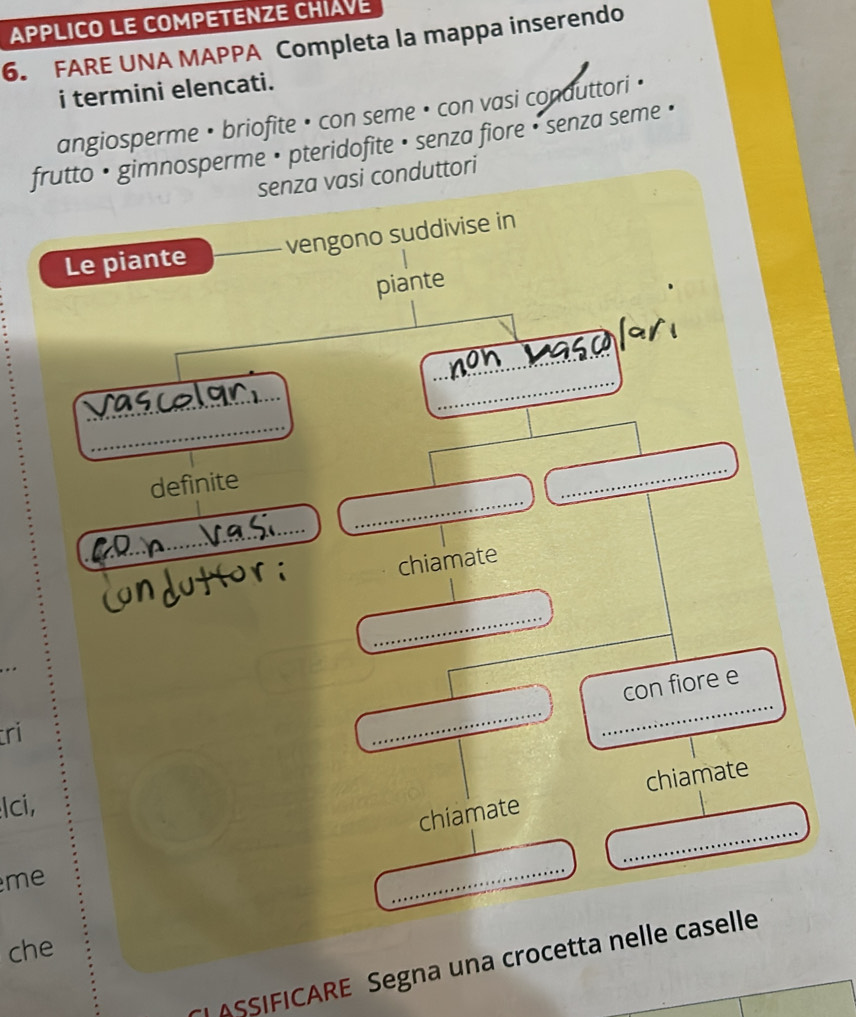 APPLICO LE COMPETENZE CHIAVE
6. FARE UNA MAPPA Completa la mappa inserendo
i termini elencati.
angiosperme • briofite • con seme • con vasi conduttori •
frutto • gimnosperme • pteridofite • senza fiore • senza seme •
senza vasi conduttori
Le piante vengono suddivise in
piante
non vascolari
vascolari
definite
con vasi
conduttori
chiamate
con fiore e
tri
chiamate
lci,
chiamate
me
che
CLASSIFICARE Segna una crocetta nelle caselle